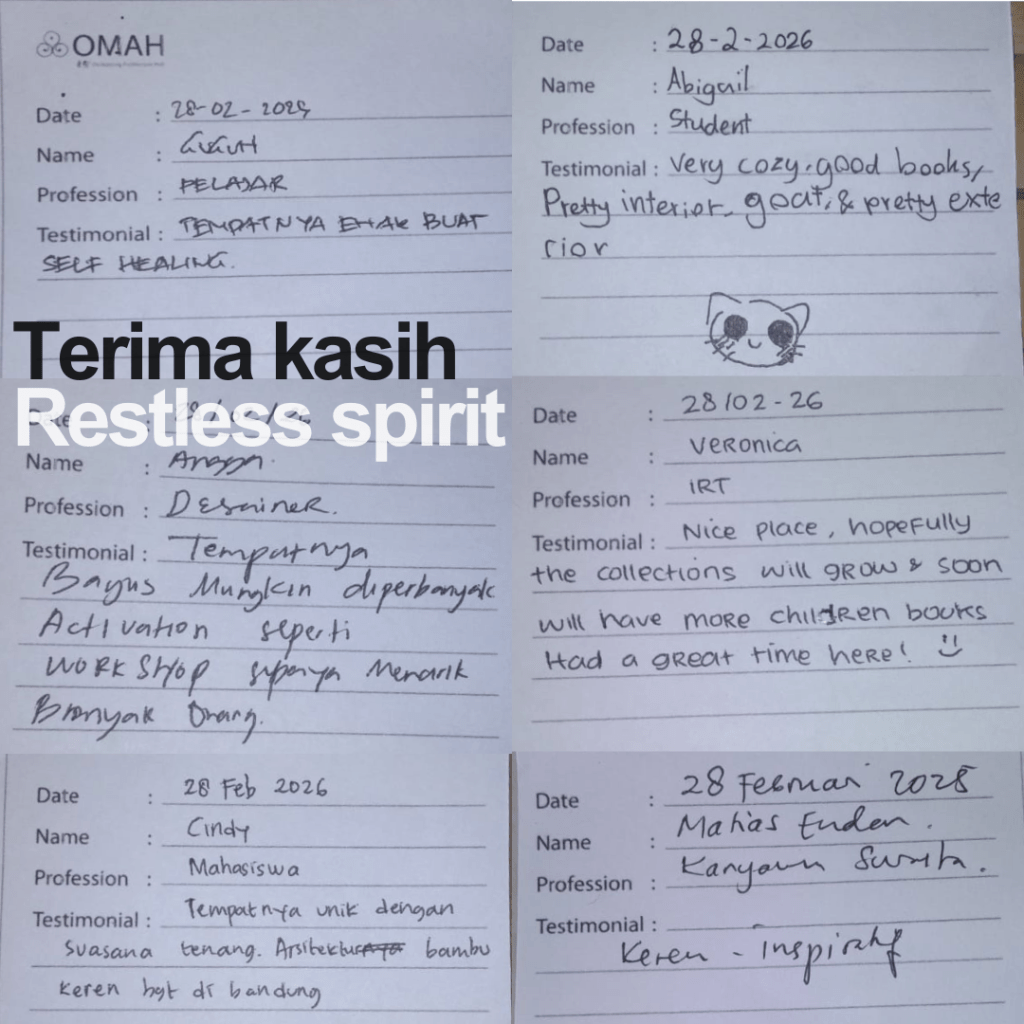 OMAH
Date : 28-02-2025
Name : GUGUH
Profession : PELAJAR
Testimonial : TEMPATNYA ENAK BUAT
SELF HEALING.
Date : 28-2-2026
Name : Abigail
Profession : Student
Testimonial : Very cozy, good books,
Pretty interior, goat, & pretty exte
rior
Terima kasih
Restless spirit
Date
Name : Angga.
Profession : Desainer.
Testimonial : Tempatnya
Bagus Mungkin diperbanyak
Activation seperti
WORKSHOP supaya Menarik
Banyak Orang.
Date : 28/02-26
Name : Veronica
Profession : IRT
Testimonial : Nice place, hopefully
the collections will grow & soon
will have more children books
Had a great time here!
Date : 28 Feb 2026
Name : Cindy
Profession : Mahasiswa
Testimonial : Tempatnya unik dengan
suasana tenang. Arsitektur bambu
keren bgt di bandung
Date : 28 Februari 2025
Name : Matias Enden.
Profession : Karyawan Swasta.
Testimonial :
Keren - Inspiratif